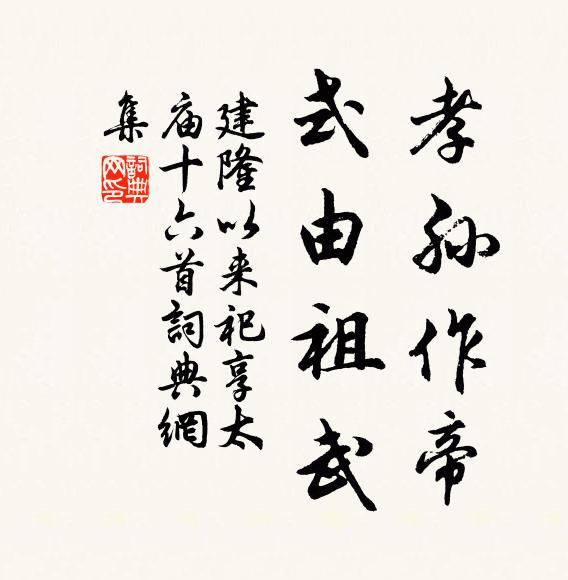 孝孙作帝
式由祖武
建隆以来祀享太
庙十六首詞典網
集
詞典
网印